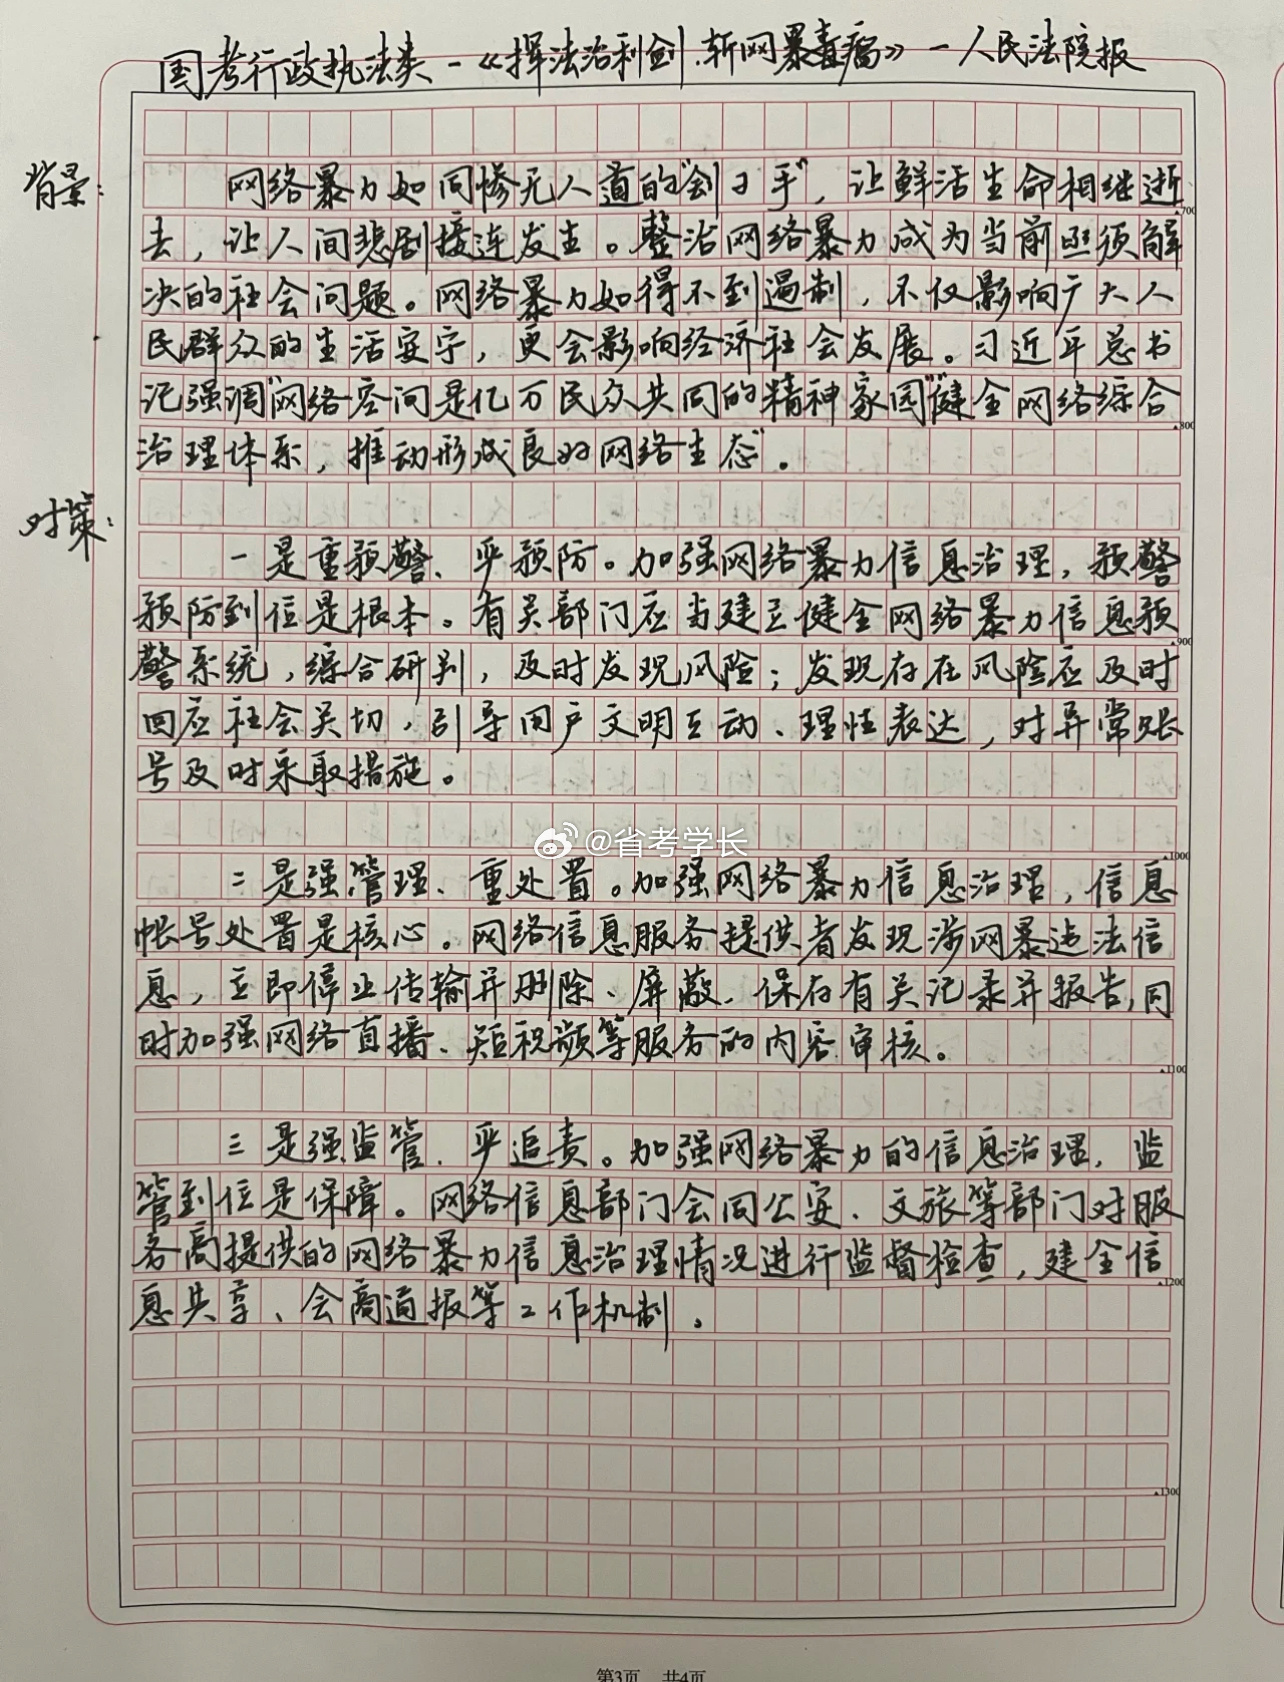 国考行政执法类-《挥法治利剑、斩网暴毒瘤》-人民法院报
背景:
网络暴力如同惨无人道的"刽子手",让鲜活生命相继逝
去,让人间悲剧接连发生。整治网络暴力成为当前亟须解
决的社会问题。网络暴力如得不到遏制,不仅影响广大人
民群众的生活安宁,更会影响经济社会发展。习近平总书
记强调"网络空间是亿万民众共同的精神家园""健全网络综合
治理体系,推动形成良好网络生态"。
对策:
一是重预警、严预防。加强网络暴力信息治理,预警
预防到位是根本。有关部门应当建立健全网络暴力信息预
警系统,综合研判,及时发现风险;发现存在风险应及时
回应社会关切,引导用户文明互动、理性表达,对异常账
号及时采取措施。
@省考学长
二是强管理、重处置。加强网络暴力信息治理,信息
帐号处置是核心。网络信息服务提供者发现涉网暴违法信
息,立即停止传输并删除、屏蔽、保存有关记录并报告,同
时加强网络直播、短视频等服务的内容审核。
三是强监管、严追责。加强网络暴力的信息治理,监
管到位是保障。网络信息部门会同公安、文旅等部门对服
务商提供的网络暴力信息治理情况进行监督检查,建全信
息共享、会商通报等工作机制。
700
800
900
1000
1100
1200
1300
第3页 共4页